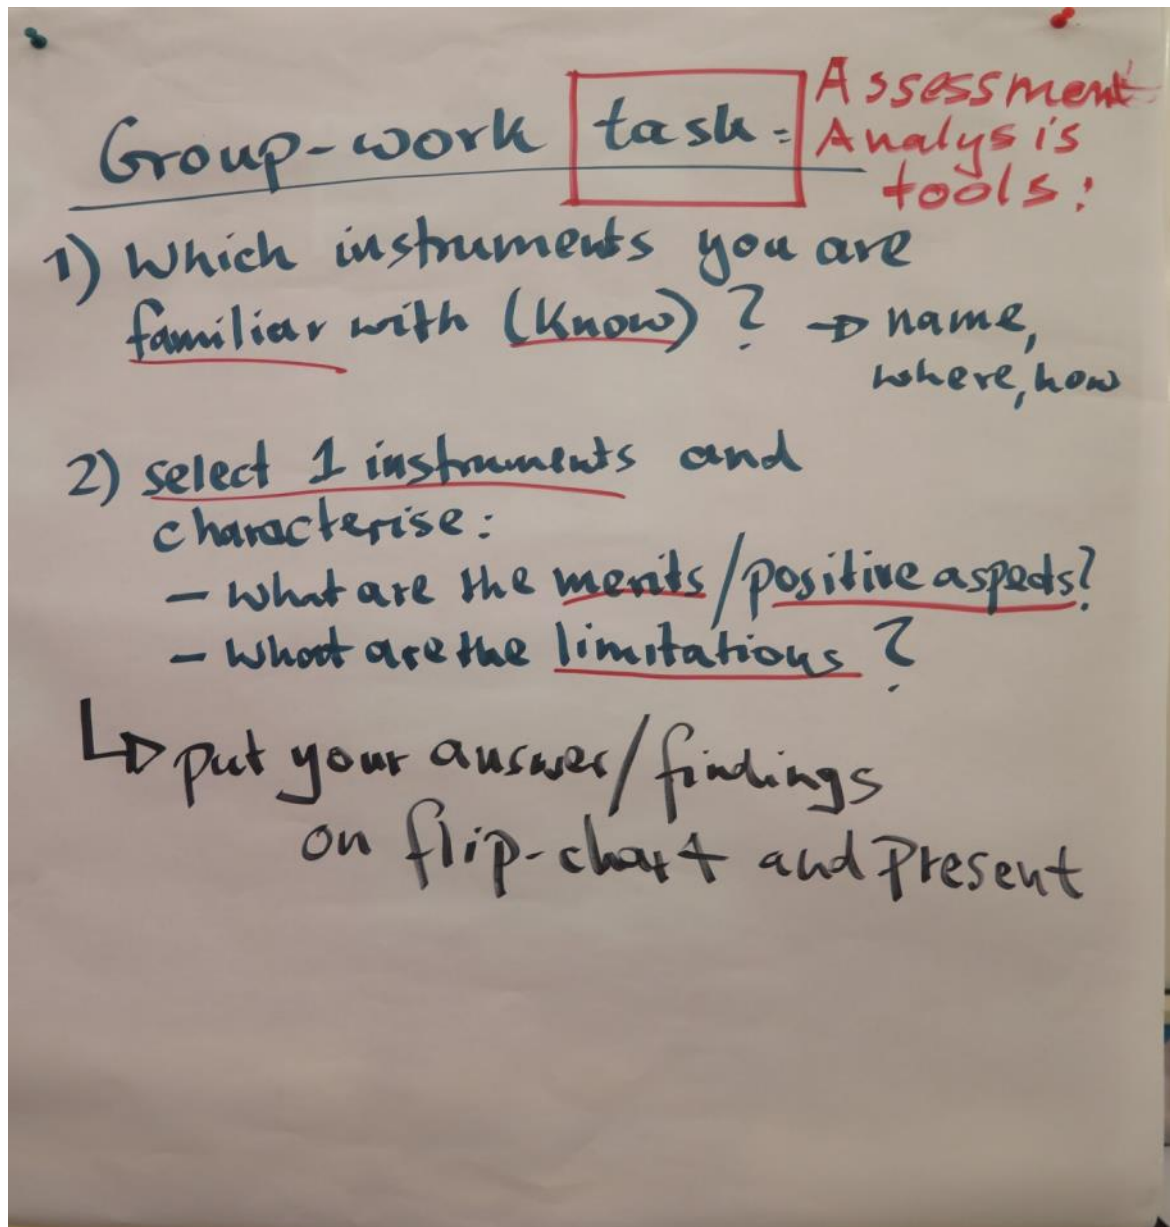 Group-work task:
Assessment
Analysis
tools:
1) Which instruments you are
familiar with (know)? → name,
where, how
2) select 1 instruments and
characterise:
- what are the merits/positive aspects?
- what are the limitations?
↳ put your answer/findings
on flip-chart and present